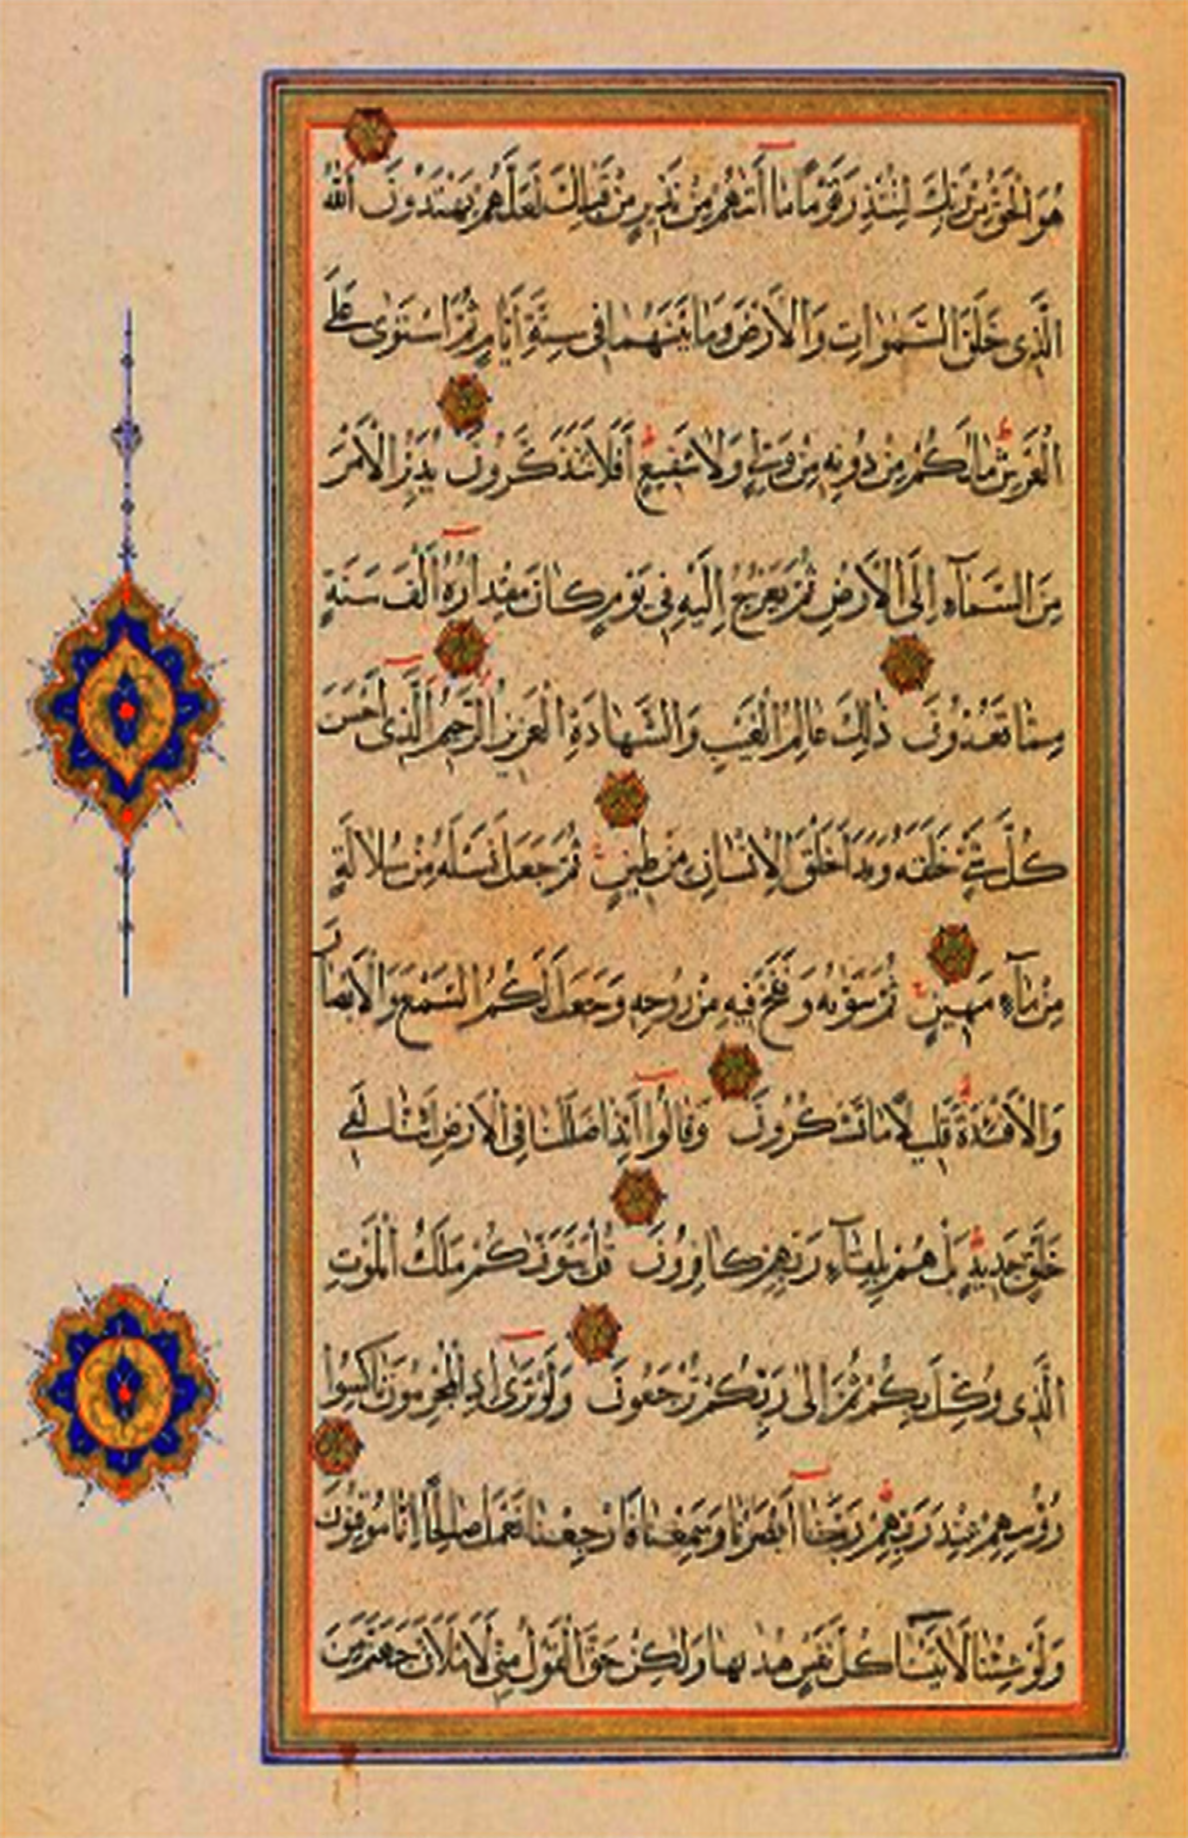 هُوَ الْحَقُّ مِنْ رَبِّكَ لِتُنْذِرَ قَوْمًا مَا أَتَاهُمْ مِنْ نَذِيرٍ مِنْ قَبْلِكَ لَعَلَّهُمْ يَهْتَدُونَ اللَّهُ
الَّذِي خَلَقَ السَّمٰوَاتِ وَالْأَرْضَ وَمَا بَيْنَهُمَا فِي سِتَّةِ أَيَّامٍ ثُمَّ اسْتَوَىٰ عَلَى
الْعَرْشِ مَا لَكُمْ مِنْ دُونِهِ مِنْ وَلِيٍّ وَلَا شَفِيعٍ أَفَلَا تَتَذَكَّرُونَ يُدَبِّرُ الْأَمْرَ
مِنَ السَّمَآءِ إِلَى الْأَرْضِ ثُمَّ يَعْرُجُ إِلَيْهِ فِي يَوْمٍ كَانَ مِقْدَارُهُ أَلْفَ سَنَةٍ
مِمَّا تَعُدُّونَ ذٰلِكَ عَالِمُ الْغَيْبِ وَالشَّهَادَةِ الْعَزِيزُ الرَّحِيمُ الَّذِي أَحْسَنَ
كُلَّ شَيْءٍ خَلَقَهُ وَبَدَأَ خَلْقَ الْإِنْسَانِ مِنْ طِينٍ ثُمَّ جَعَلَ نَسْلَهُ مِنْ سُلَالَةٍ
مِنْ مَآءٍ مَهِينٍ ثُمَّ سَوّٰيهُ وَنَفَخَ فِيهِ مِنْ رُوحِهِ وَجَعَلَ لَكُمُ السَّمْعَ وَالْأَبْصَارَ
وَالْأَفْئِدَةَ قَلِيلًا مَا تَشْكُرُونَ وَقَالُوا أَئِذَا ضَلَلْنَا فِي الْأَرْضِ أَئِنَّا لَفِي
خَلْقٍ جَدِيدٍ بَلْ هُمْ بِلِقَآءِ رَبِّهِمْ كَافِرُونَ قُلْ يَتَوَفَّاكُمْ مَلَكُ الْمَوْتِ
الَّذِي وُكِّلَ بِكُمْ ثُمَّ إِلَىٰ رَبِّكُمْ تُرْجَعُونَ وَلَوْ تَرَىٰ إِذِ الْمُجْرِمُونَ نَاكِسُوا
رُؤُسِهِمْ عِنْدَ رَبِّهِمْ رَبَّنَا أَبْصَرْنَا وَسَمِعْنَا فَارْجِعْنَا نَعْمَلْ صَالِحًا إِنَّا مُوقِنُونَ
وَلَوْ شِئْنَا لَآتَيْنَا كُلَّ نَفْسٍ هُدٰيهَا وَلٰكِنْ حَقَّ الْقَوْلُ مِنِّي لَأَمْلَأَنَّ جَهَنَّمَ مِنَ